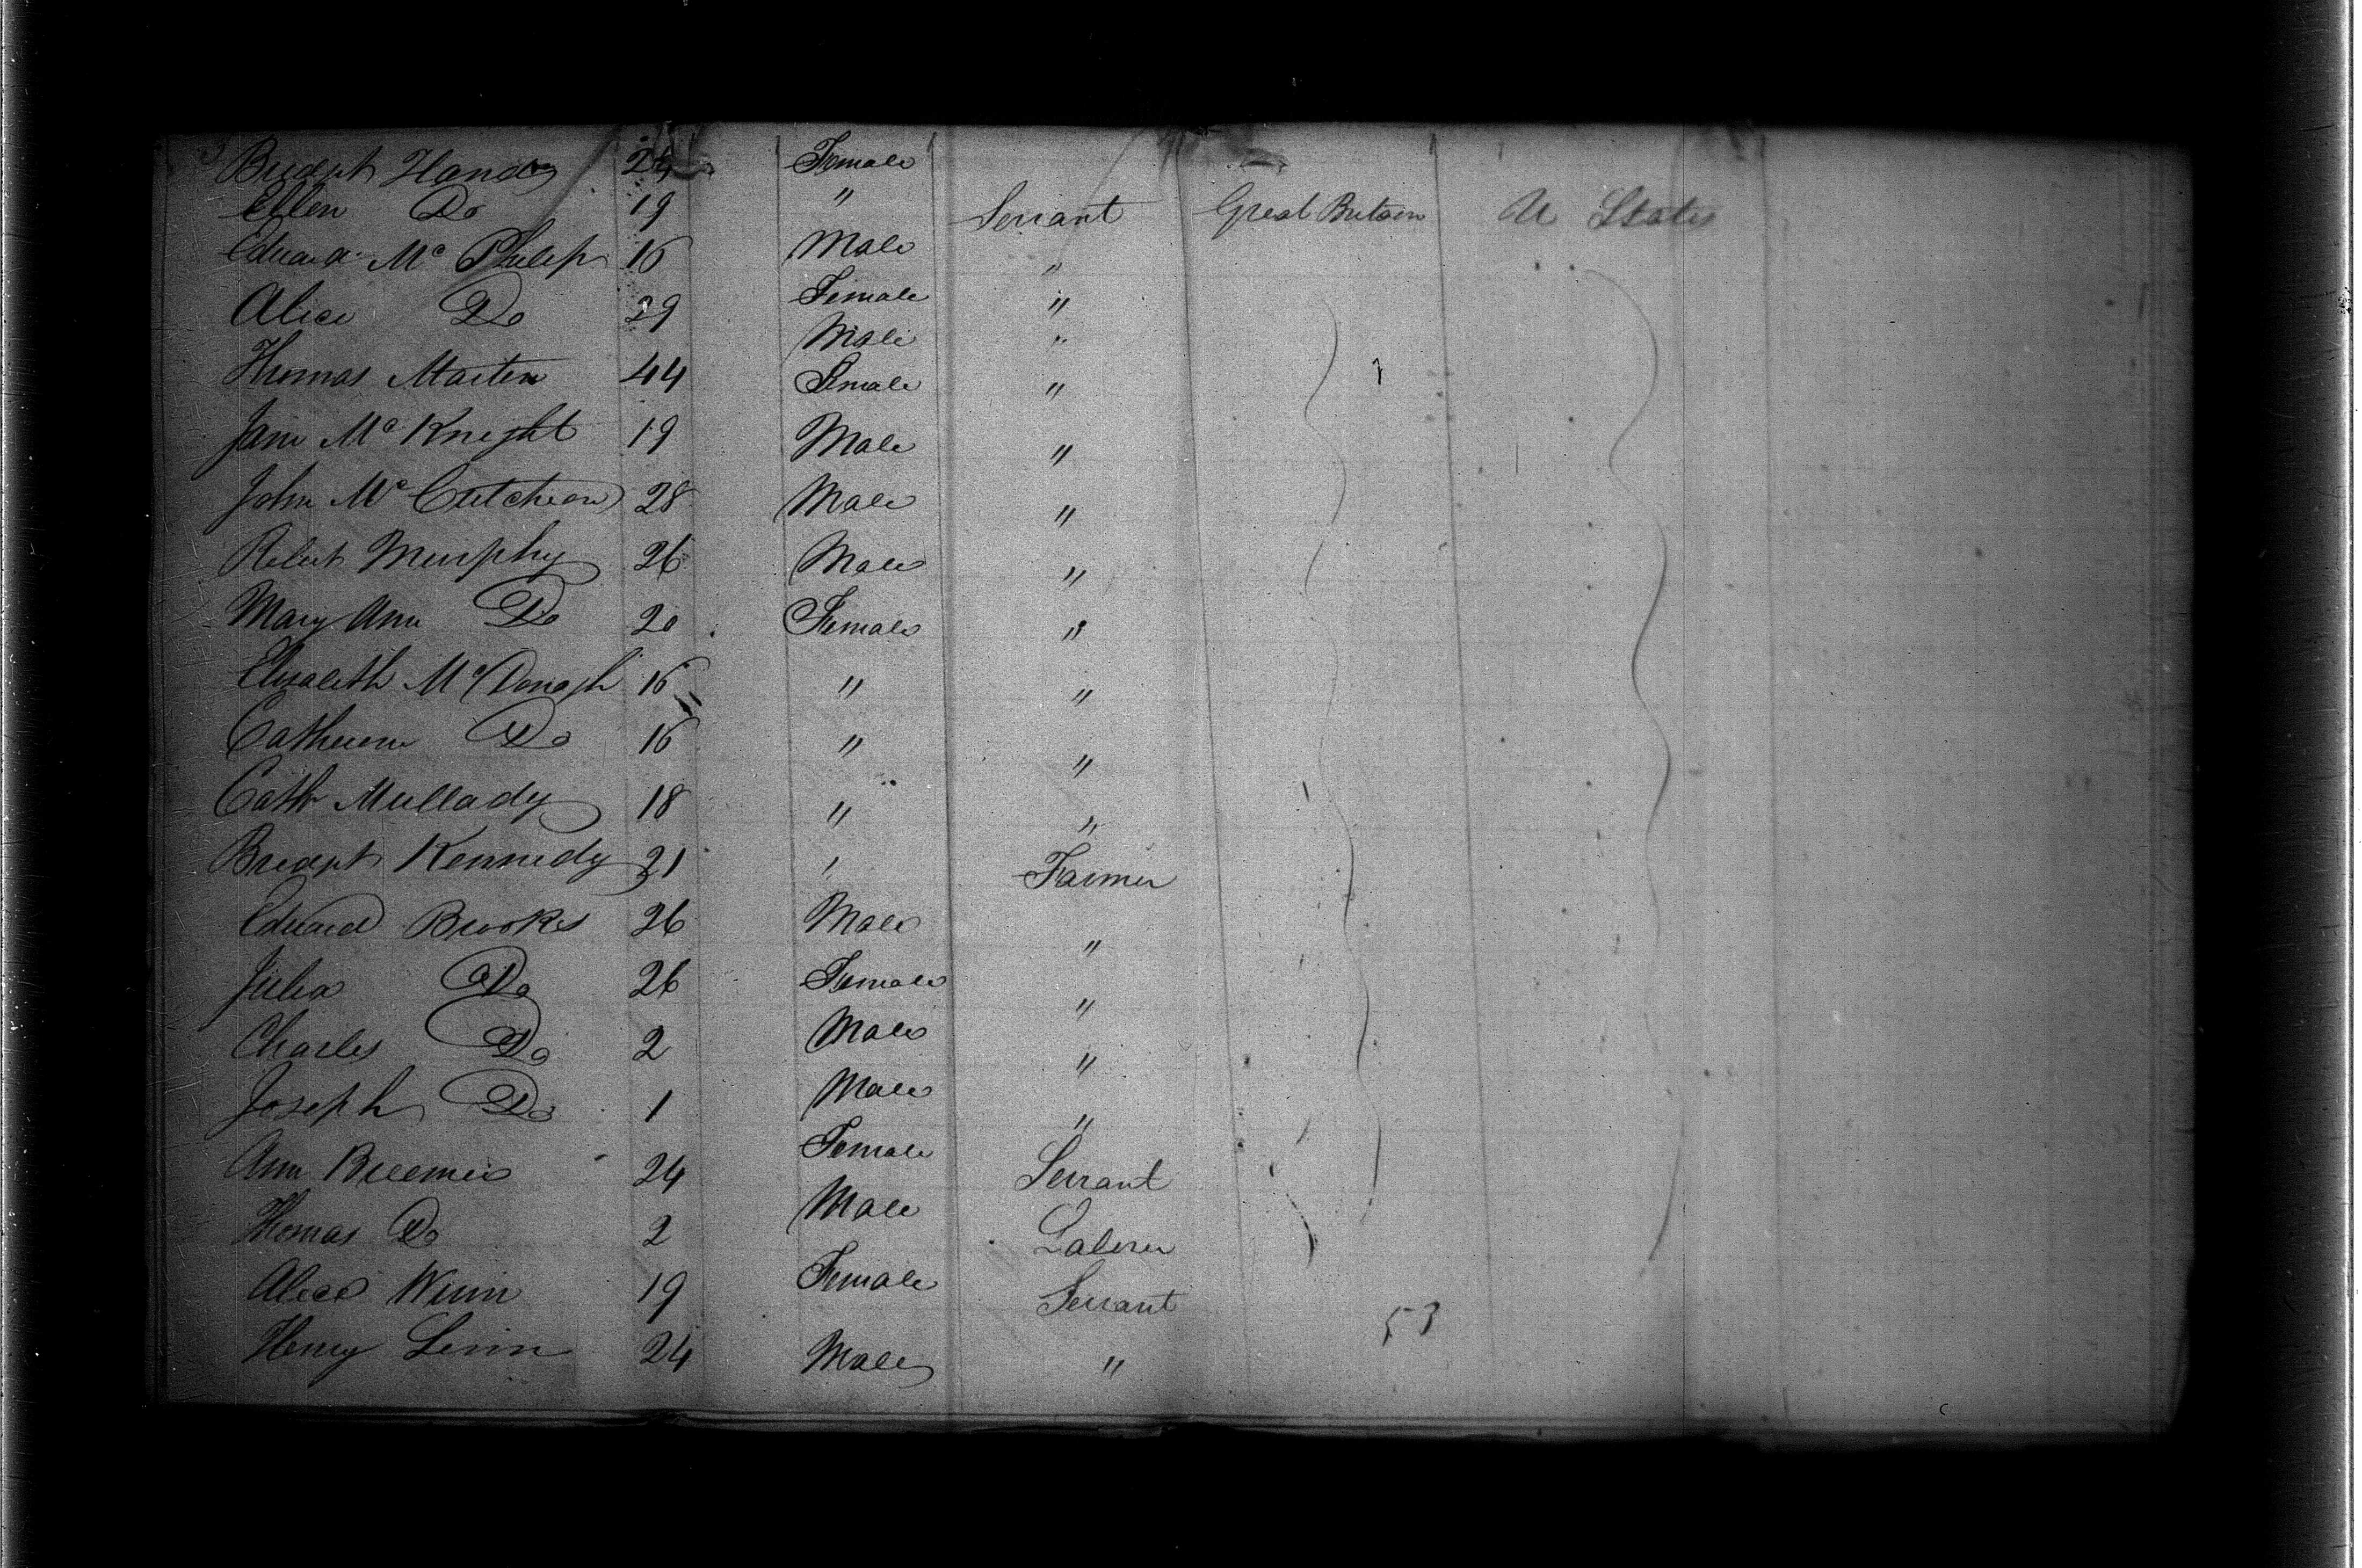 Bridgt Handy 24 Female
Ellen Do 19 " Servant Great Britain U States
Edward Mc Philip 16 Male "
Alice Do 29 Female "
Thomas Martin 44 Male "
Jane Mc Knight 19 Female "
John Mc Cutcheon 28 Male "
Robert Murphy 26 Male "
Mary Ann Do 20 Male "
Elisabeth McDonagh 16 Female "
Catherine Do 16 " "
Cath Mullady 18 " "
Bridgt Kennedy 21 " "
Edward Brookes 26 " Farmer
Julia Do 26 Male "
Charles Do 2 Female "
Joseph Do 1 Male "
Ann 24 Male "
Thomas Do 2 Female Servant
Alice 19 Male Laborer
Henry 24 Female Servant
Male "
53